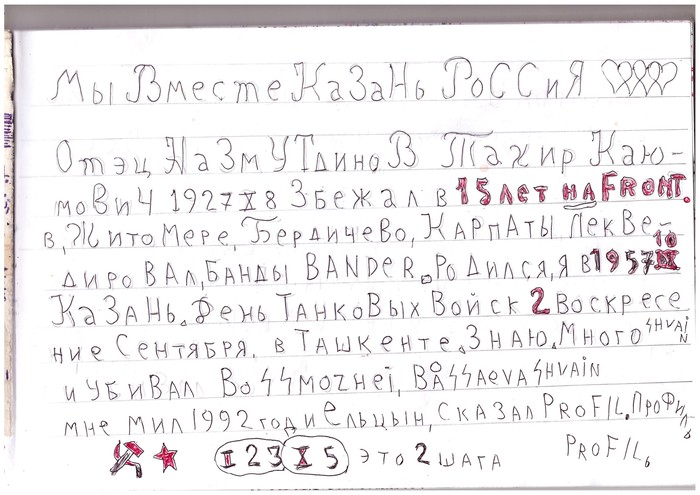 Мы Вместе Казань РоССиЯ
Отэц НаЗмУТдиноВ Тахир Каю-
мовиЧ 1927 X 8 Збежал в 15 лет на FRONT.
в, Житомере, Бердичево, Карпаты Лекве-
дировал, Банды BANDER. Родился, я в 1957 10 IX
КаЗаНь. День Танковых Войск 2 Воскресе
ние Сентября. в Ташкенте. Знаю, Много SHVAiN
и убивал BoSSmozhei, BASSAEVA SHVAiN
мне мил 1992 год и Ельцын, сказал PROFIL. Профиль
I 2 3 X 5 это 2 шага PROFIL,